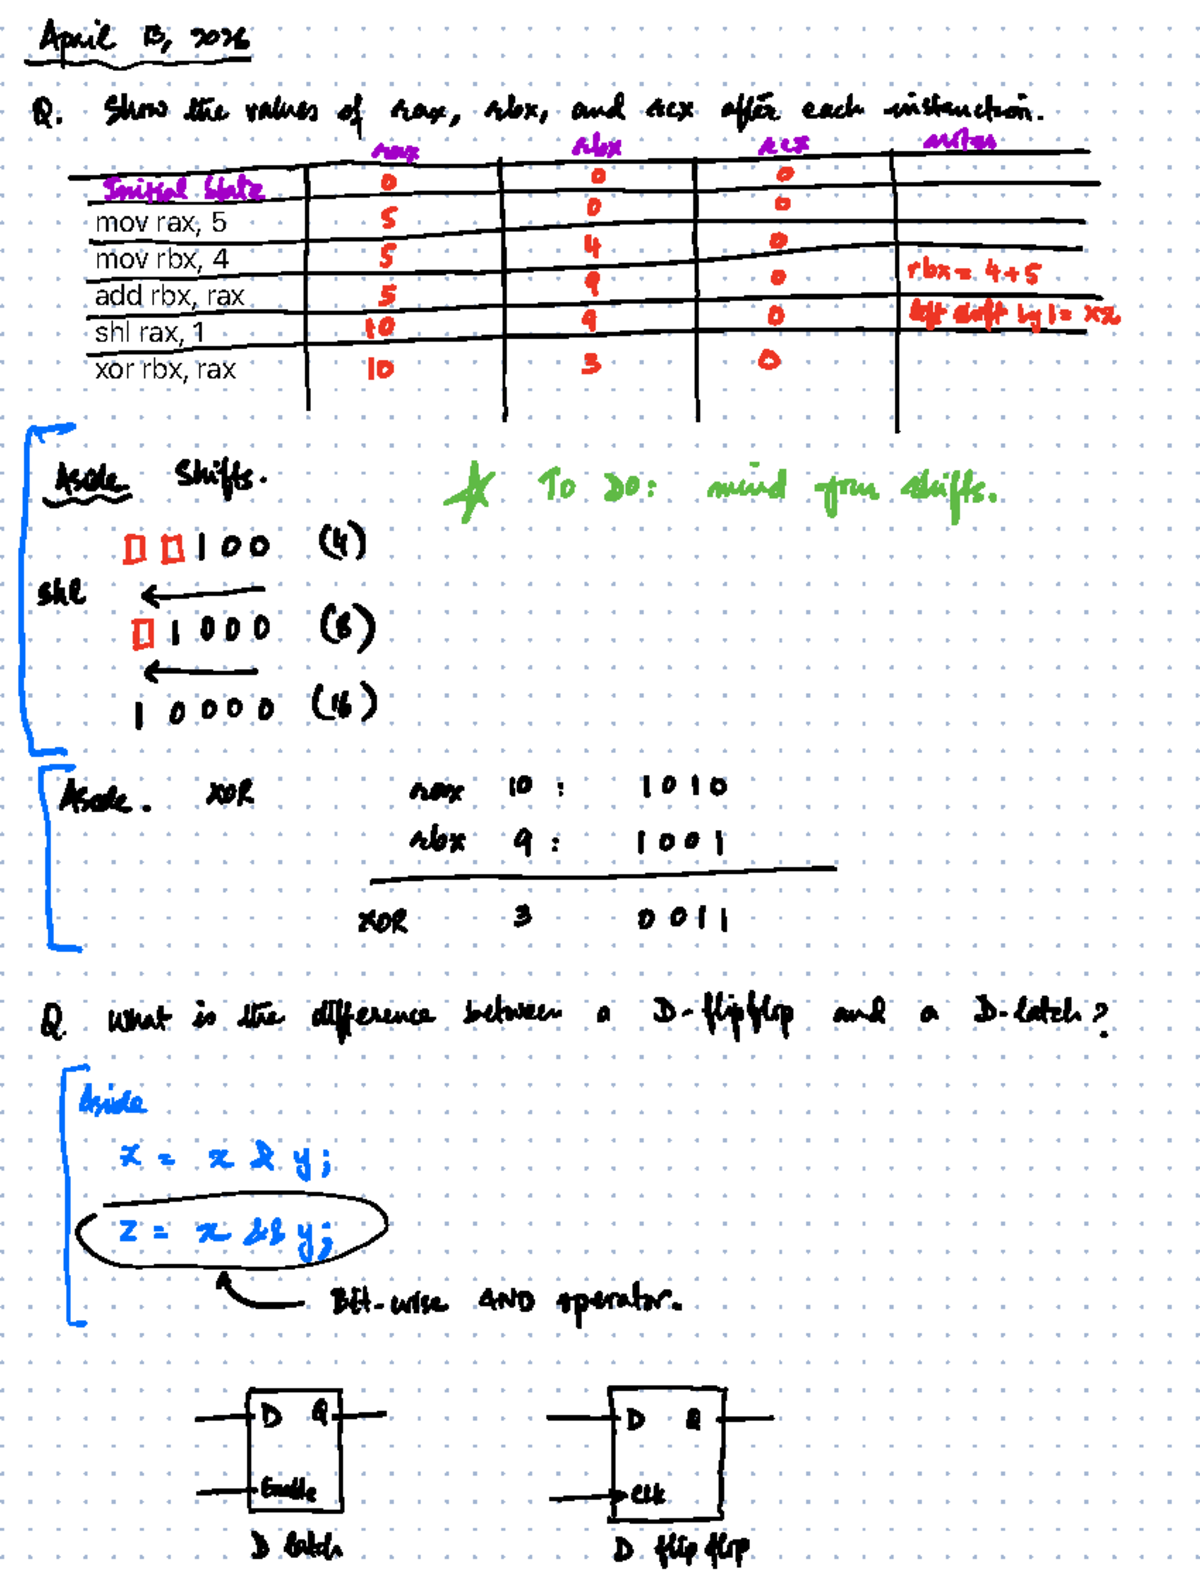 April 13, 2026
Q. Show the values of rax, rbx, and rcx after each instruction.
rax rbx rcx notes
Initial State 0 0 0
mov rax, 5 5 0 0
mov rbx, 4 5 4 0
add rbx, rax 5 9 0 rbx = 4+5
shl rax, 1 10 9 0 left shift by 1 = x2
xor rbx, rax 10 3 0
Aside Shifts.
☆ To Do: mind your shifts.
□ □ 1 0 0 (4)
shl ←
□ 1 0 0 0 (8)
←
1 0 0 0 0 (16)
Aside. XOR rax 10 : 1 0 1 0
rbx 9 : 1 0 0 1
XOR 3 0 0 1 1
Q. What is the difference between a D-flipflop and a D-latch?
Aside
z = x & y;
z = x && y;
Bit-wise AND operator.
D Q D Q
Enable Clk
D latch D flip flop